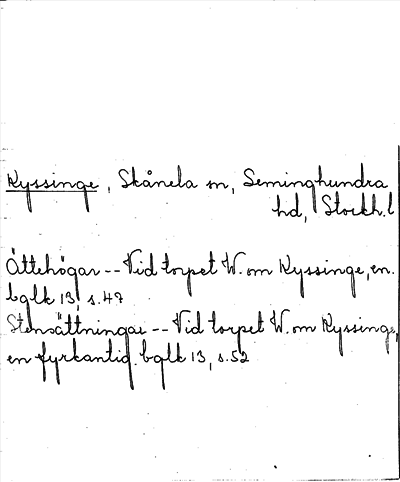 Kyssinge, Skånela sn, Seminghundra
hd, Stockh.l
Ättehögar -- Vid torpet W. om Kyssinge, en.
bglk 13, s.49
Stensättningar -- Vid torpet W. om Kyssinge,
en fyrkantig. bglk 13, s.52